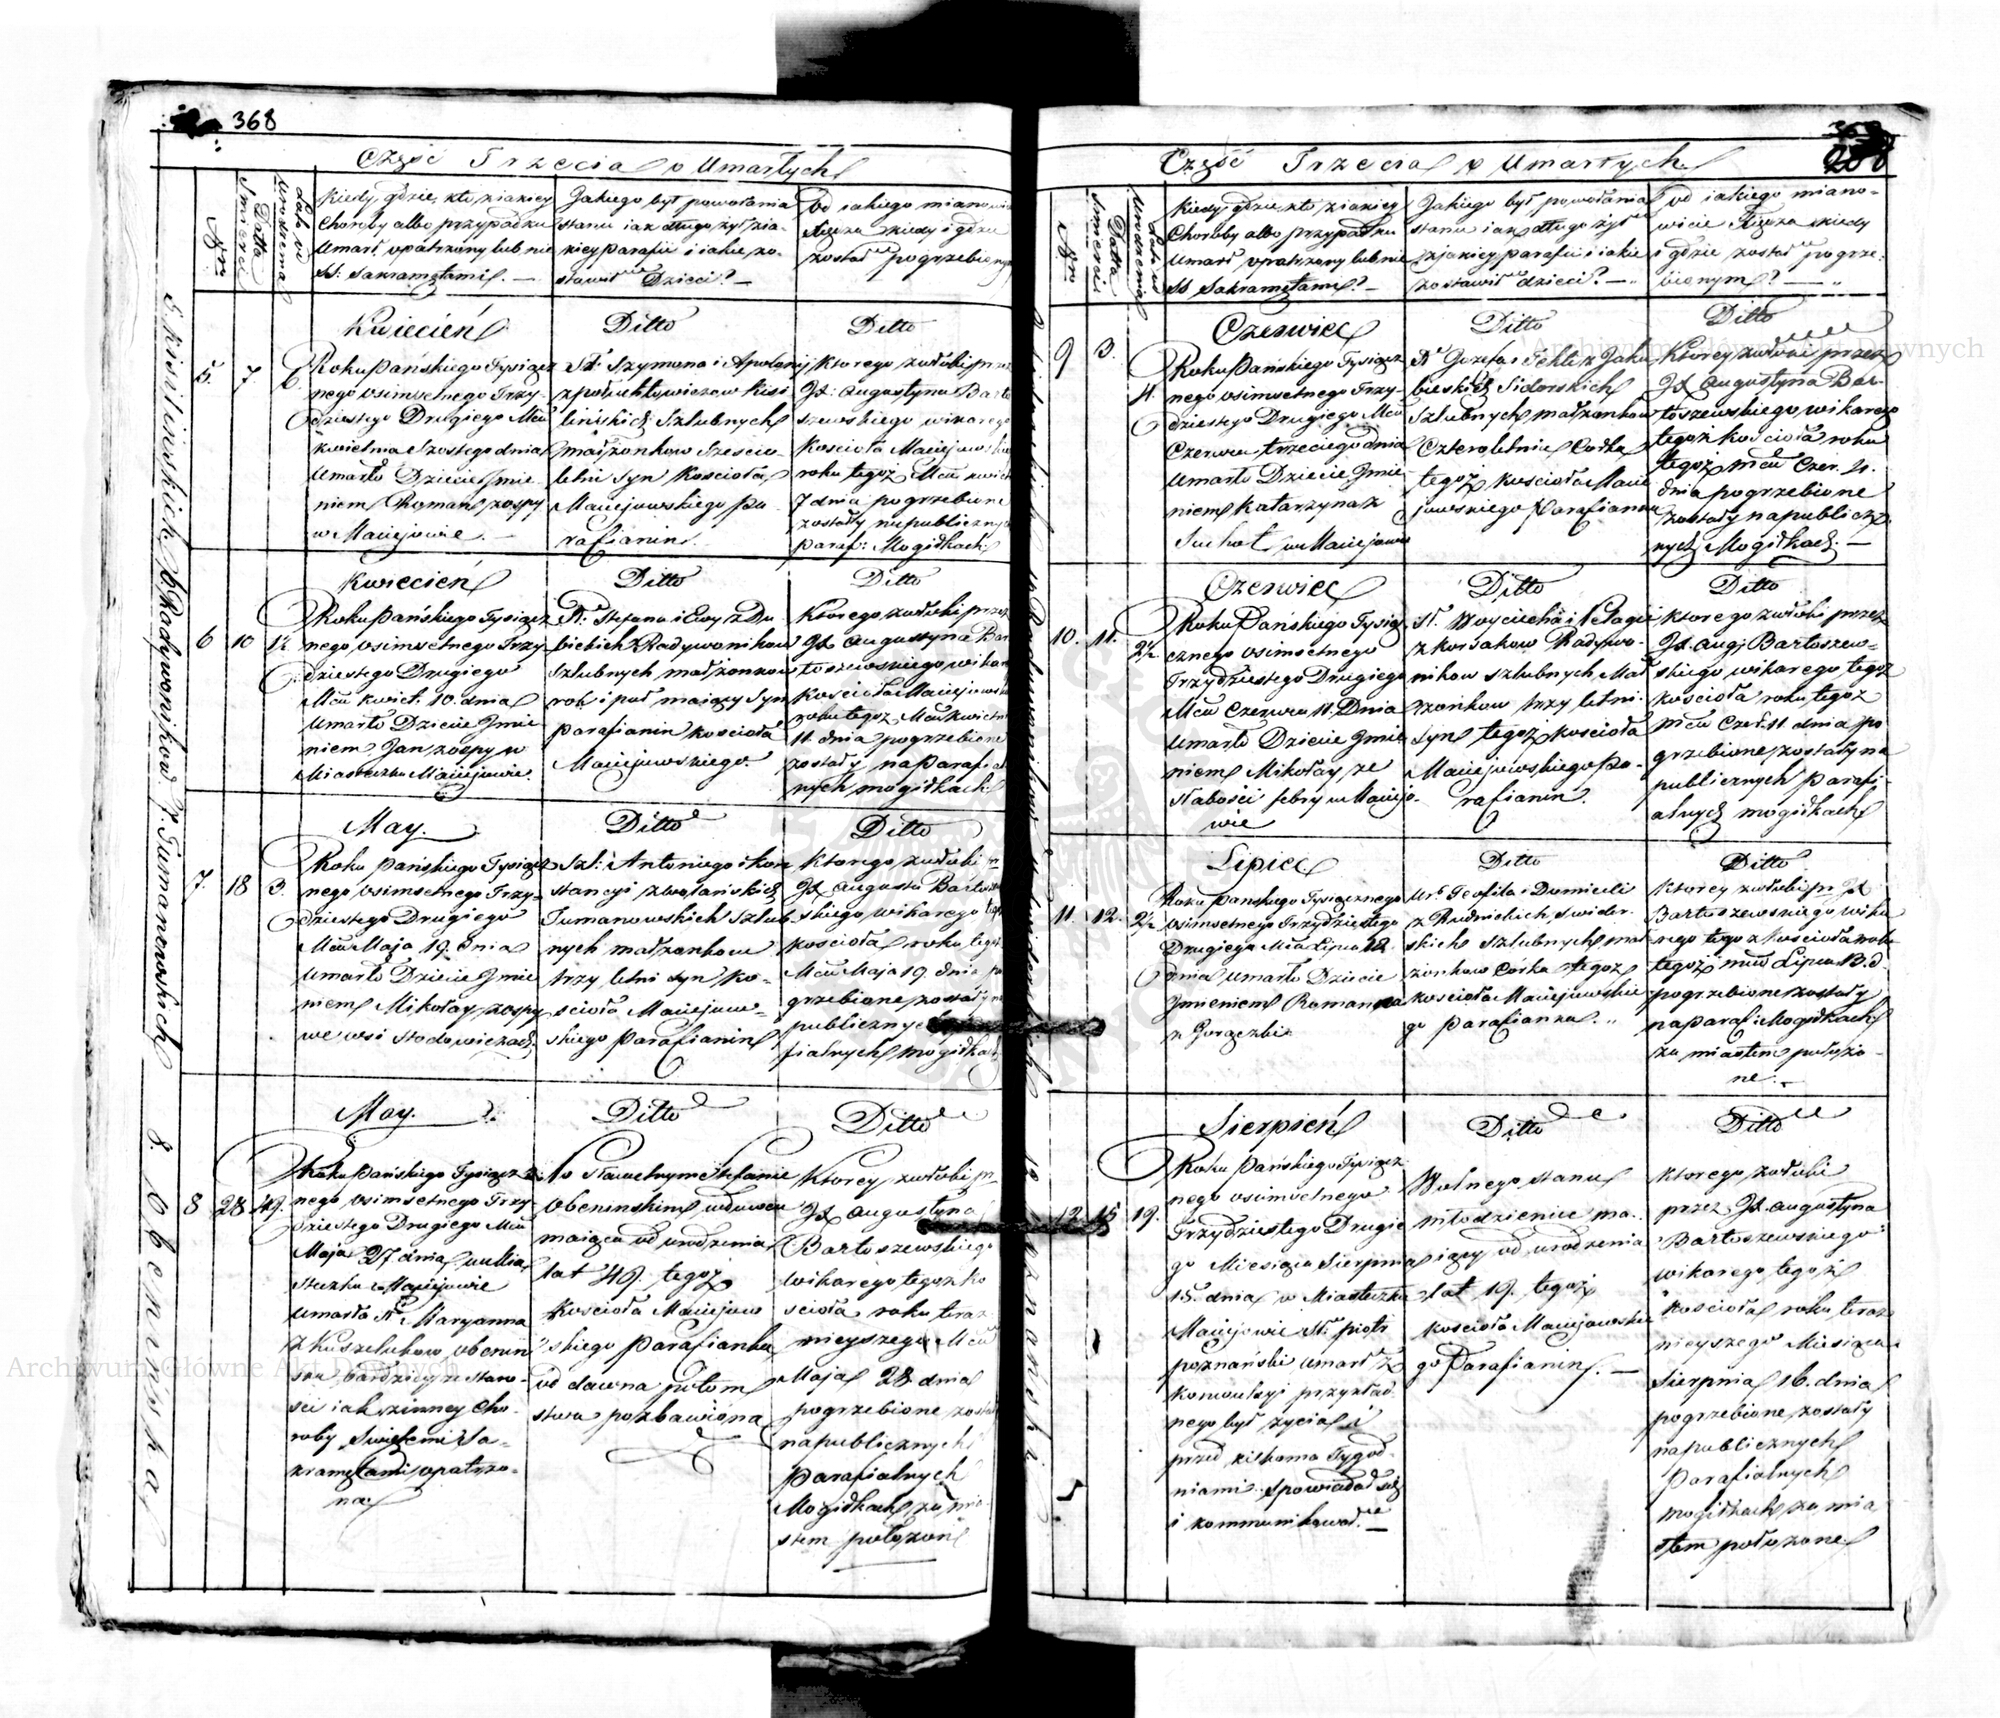 368
Część Trzecia o Umarłych
Nr
Datta Śmierci
Lata od urodzenia
Kiedy, gdzie, kto, z iakiey
Choroby albo przypadku
Umarł, opatrzony lub nie
SS: Sakramętami. —
Jakiego był powołania
stanu iak długo żył z ia-
kiey parafii i iakie zo-
stawił Dzieci? —
Od iakiego mianowi
Xiędza kiedy i gdzie
został pogrzebiony
Kwiecień
Ditto
Ditto
5. 7. 6.
Roku Pańskiego Tysiącz
nego osimsetnego Trzy-
dziestego Drugiego Mca
kwietnia Szostego dnia
Umarło Dziecie Jmie-
niem Roman z ospy
w Maciejowie. —
Sł: Szymona i Apolonij
linskich Szlubnych
małżonkow Szescio-
letni Syn Kościoła
Maciejowskiego Pa
rafianin.
Ktorego zwłoki prze
JX: Augustyna Barto
szewskiego wikarego
Kościoła Maciejows
roku tegoż Mca kwiet
7 dnia pogrzebione
zostały na publicznych
Paraf: Mogiłkach
Kwiecień
Ditto
Ditto
6 10 1½
Roku Pańskiego Tysiącz
nego osimsetnego Trzy
dziestego Drugiego
Mca kwiet. 10. dnia
Umarło Dziecie Jmie
niem Jan z ospy w
Miasteczku Maciejowie.
Sł: Stefana i Ewy z Du
bickich Radywonikow
Szlubnych małżonkow
rok i puł maiący Syn
Parafianin kościoła
Maciejowskiego.
Ktorego zwłoki przez
JX Augustyna Bar
toszewskiego wikar
Kościoła Maciejowsk
roku tegoż Mca Kwietn
11 dnia pogrzebione
zostały na Parafial
nych mogiłkach
May.
Ditto
Ditto
7. 18 3.
Roku Pańskiego Tysiącz
nego osimsetnego Trzy-
dziestego Drugiego
Mca Maja 19. dnia
Umarło Dziecie Jmie
niem Mikołay z ospy
we wsi Stodowiczach
Szl: Antoniego i Kon
stancyi z Wolańskich
Tumanowskich Szlub-
nych małżonkow
trzy letni syn Ko-
ścioła Maciejow-
skiego Parafianin
Ktorego zwłoki pr
JX Augusta Bartosze
skiego wikarego
kościoła roku tegoż
Mca Maja 19 dnia po
grzebione zostały na
publicznych
fialnych mogiłkach
May.
Ditto
Ditto
8 28 49.
Roku Pańskiego Tysiącz
nego osimsetnego Trzy
dziestego Drugiego Mca
Maja 27 dnia w Mia
steczku Maciejowie
Umarła Sł. Maryanna
z Kuszelukow Obenin
ska bardziey ze Staro-
sci iak z inney Cho-
roby Swiętemi Sa-
kramętami opatrzo-
na
Po Sławetnym Stefanie
Obeninskim wdowa
maiąca od urodzenia
lat 49. tegoż
Kościoła Maciejow
skiego Parafianka
od dawna potom
stwa pozbawiona
Ktorey zwłoki pr
JX Augustyna
Bartoszewskiego
wikarego tegoż ko
ścioła roku tera
znieyszego Mca
Maja 28 dnia
pogrzebione zosta
na publicznych
Parafialnych
Mogiłkach za mia
stem położone
S. Kisilinskich 6 Radywonikow. 7. Tumanowskich 8. Obeninska
Część Trzecia o Umarłych
Nr
Datta Śmierci
Lata od Urodzenia
Kiedy gdzie, kto, z iakiey
Choroby albo przypadku
Umarł opatrzony lub nie
SS Sakramętami? —
Jakiego był powołania
stanu iak długo żył
z jakiey parafii i iakie
zostawił dzieci? —
od iakiego miano-
wicie Xiędza kiedy
i gdzie został pogrze-
bionym? —
Czerwiec
Ditto
Ditto
9 3. 4.
Roku Pańskiego Tysiącz
nego osimsetnego Trzy-
dziestego Drugiego Mca
Czerwca trzeciego dnia
Umarło Dziecie Jmie-
niem Katarzyna z
Suchot w Maciejowie
Sł. Jozefa i Tekli z Jaku
bieskich Sidorskich
Szlubnych małżonkow
Czteroletnia Corka
tegoż kościoła Macie
jowskiego Parafianka
Ktorey zwłoki przez
JX Augustyna Bar-
toszewskiego wikarego
tegoż kościoła roku
tegoż mca Czer. 4.
dnia pogrzebione
zostały na publicz
nych Mogiłkach. —
Czerwiec
Ditto
Ditto
10. 11. 2½
Roku Pańskiego Tysią
cznego osimsetnego
Trzydziestego Drugiego
Mca Czerwca 11. Dnia
Umarło Dziecie Jmie
niem Mikołay ze
słabości febry w Maciejo-
wie
Sł. Woyciecha i Pelagii
z Korsakow Radywo-
nikow szlubnych Mał
żonkow trzy letni
syn tegoż kościoła
Maciejowskiego Pa-
rafianin.
Ktorego zwłoki przez
JX. Aug: Bartoszew-
skiego wikarego tegoż
kościoła roku tegoż
mca Czer. 11. dnia po
grzebione zostały na
publicznych Parafi-
alnych mogiłkach
Lipiec
Ditto
Ditto
11. 12. 2½
Roku Pańskiego Tysiącznego
osimsetnego Trzydziestego
Drugiego Mca Lipca 12.
dnia umarło Dziecie
Jmieniem Romana
z Gorączki
Ur. Teofila i Domiceli
z Rudnickich Swider-
skich Szlubnych mał
żonkow Corka tegoż
kościoła Maciejowskie
go Parafianka.
Ktorey zwłoki pr JX
Bartoszewskiego wika
rego tegoż kościoła roku
tegoż mca Lipca 13. d.
pogrzebione zostały
na Paraf: Mogiłkach
za miastem położo-
ne. —
Sierpień
Ditto
Ditto
12. 15 19.
Roku Pańskiego Tysiącz
nego osimsetnego
Trzydziestego Drugie
go Miesiąca Sierpnia
15. dnia w Miasteczku
Maciejowie Sł. Piotr
Poznański umarł z
konwulsyi przykład-
nego był życia i
przed kilkoma Tygod-
niami spowiadał się
i kommunikował. —
Wolnego stanu
młodzieniec ma-
iący od urodzenia
lat 19. tegoż
kościoła Maciejowskie
go Parafianin. —
Ktorego zwłoki
przez JX. Augustyna
Bartoszewskiego
wikarego tegoż
kościoła roku teraz
nieyszego Miesiąca
Sierpnia 16. dnia
pogrzebione zostały
na publicznych
Parafialnych
mogiłkach za mia
stem położone
Archiwum Główne Akt Dawnych
Archiwum Główne Akt Dawnych